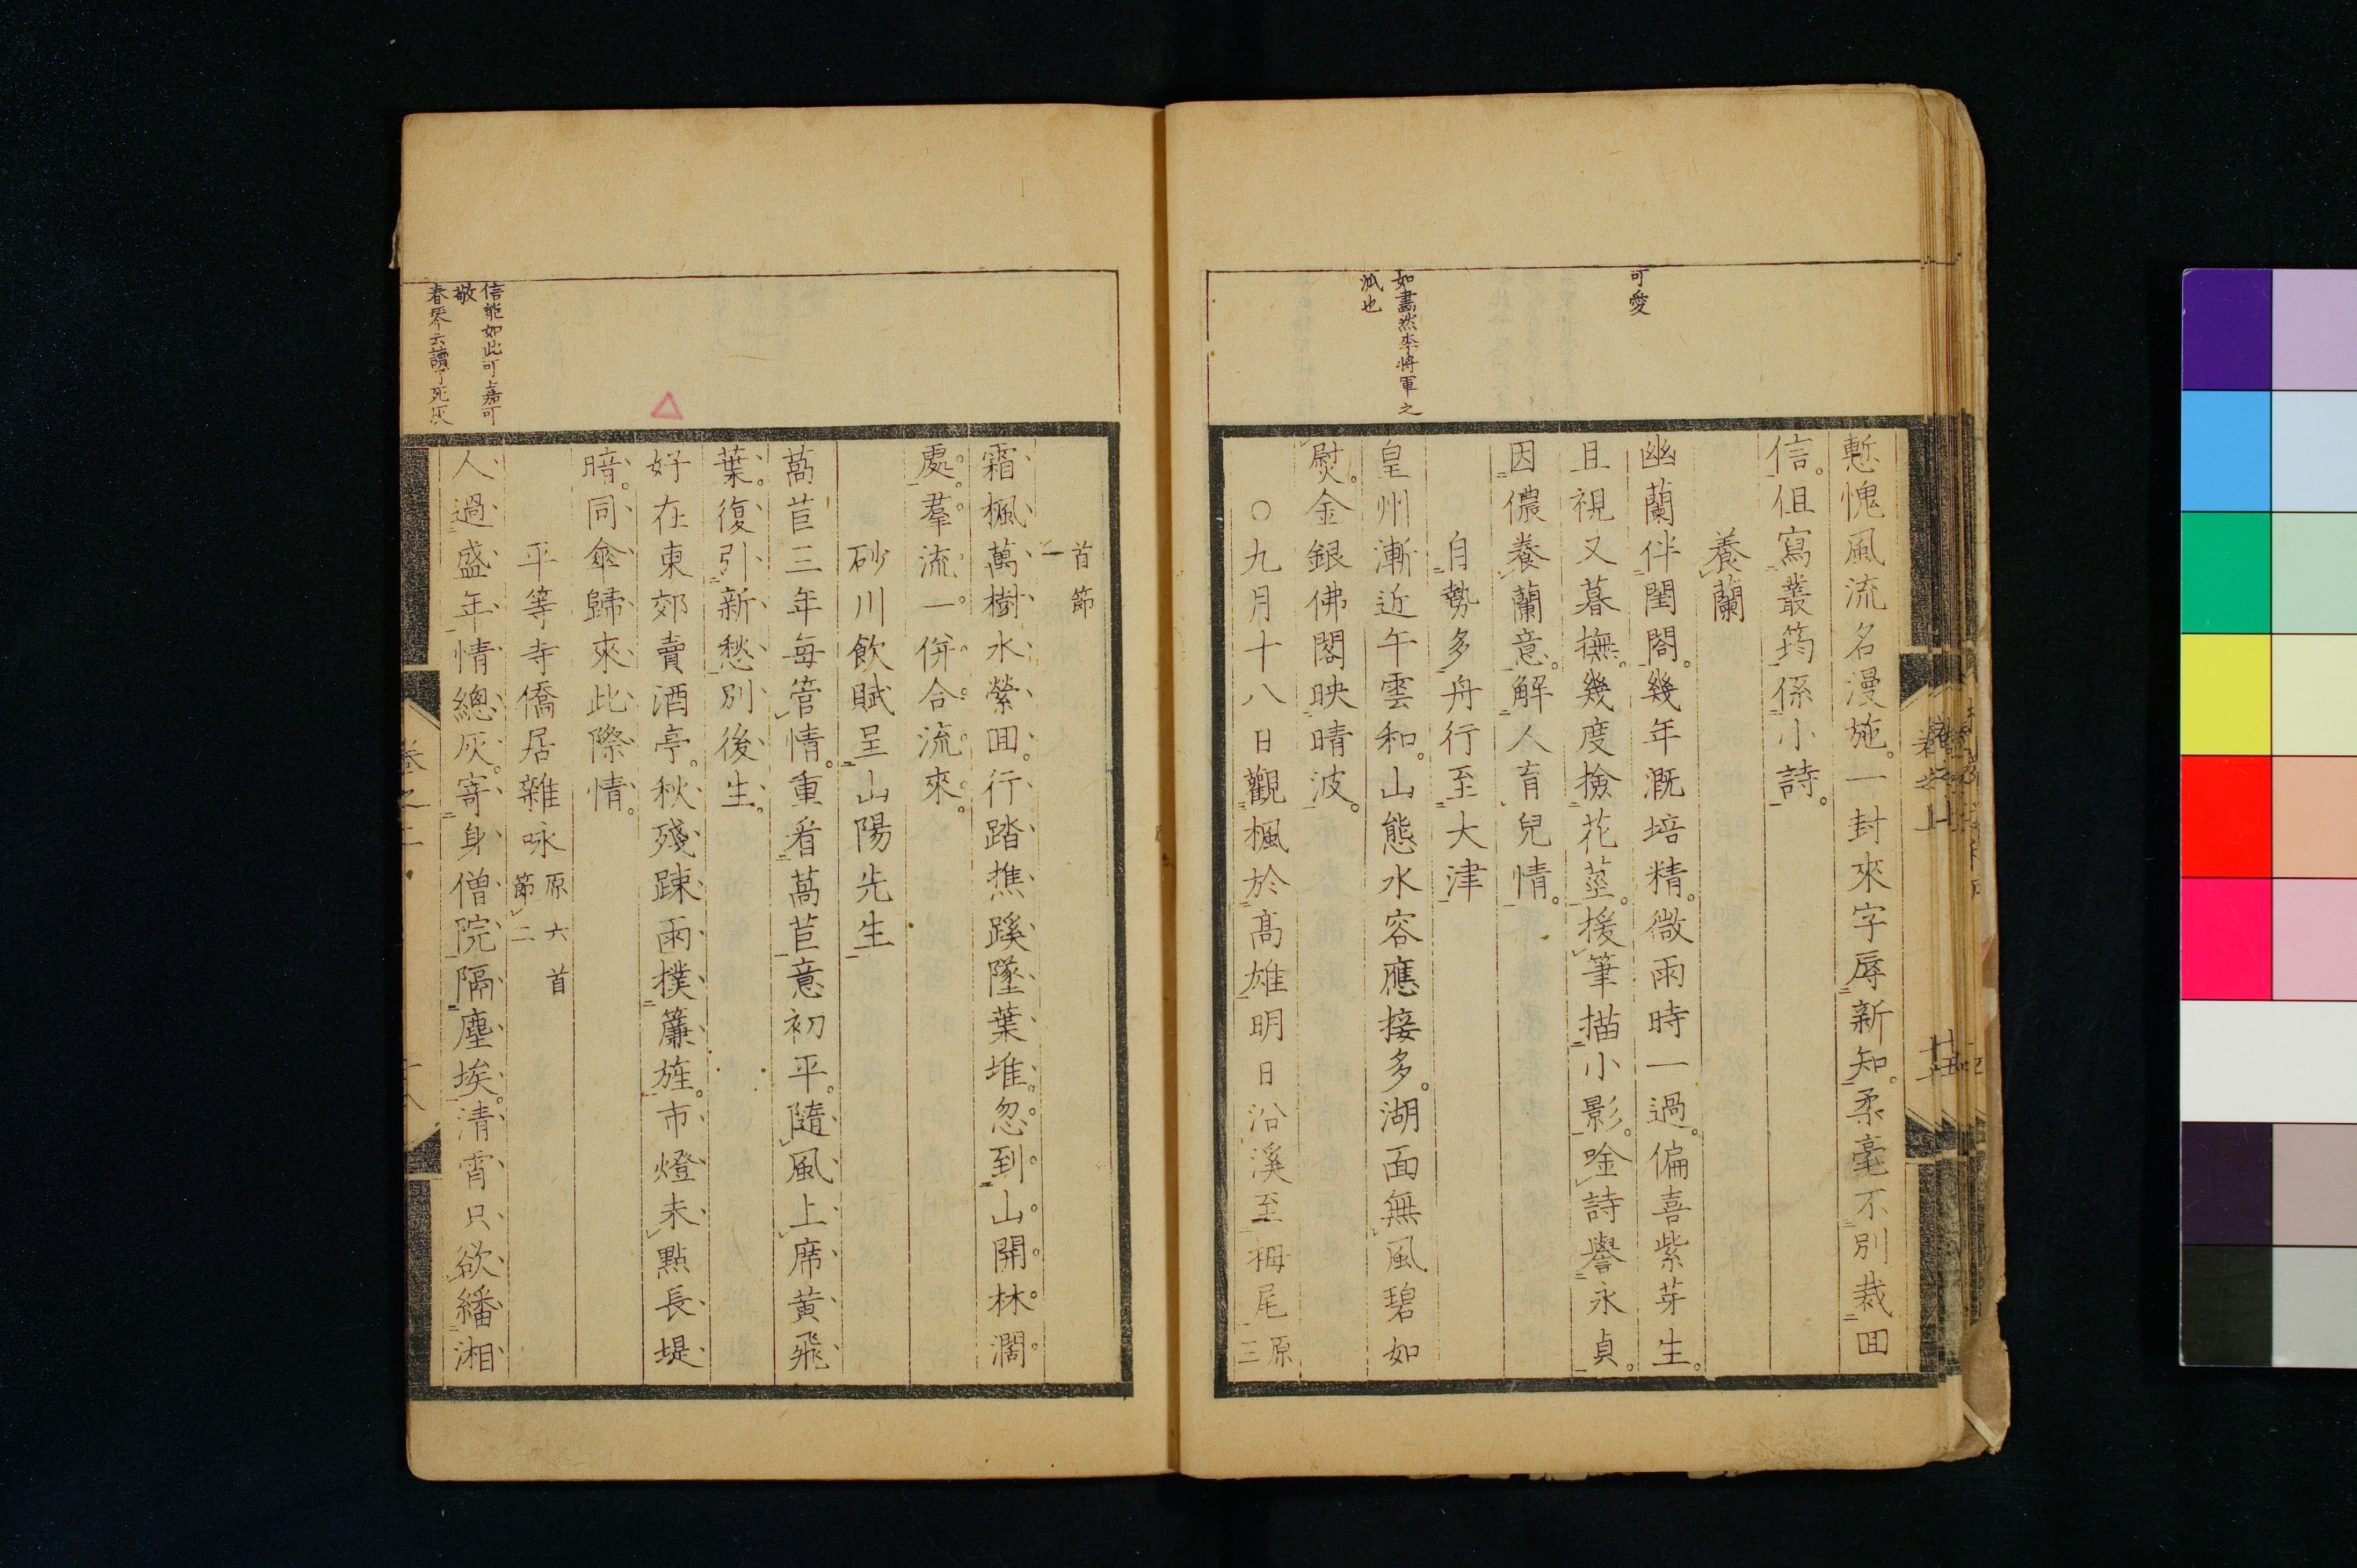 慙愧風流名漫施。一封來字辱新知。柔毫不別裁囬
信。但寫叢筠係小詩。
養蘭
可愛
幽蘭伴閨閤。幾年漑培精。微雨時一過。偏喜紫芽生。
且視又暮撫。幾度撿花莖。援筆描小影。唫詩譽永貞。
因儂養蘭意。解人育兒情。
自勢多舟行至大津
如畫然李將軍之
派也
皇州漸近午雲和。山態水容應接多。湖面無風碧如
熨。金銀佛閣映晴波。
○九月十八日觀楓於高雄明日沿溪至栂尾原三
首節
一
霜楓萬樹水縈囬。行踏樵蹊墜葉堆。忽到山開林濶
處。羣流一併合流來。
砂川飲賦呈山陽先生
萵苣三年每管情。重看萵苣意初平。隨風上席黄飛
葉。復引新愁別後生。
好在東郊賣酒亭。秋殘疎雨撲簾旌。市燈未點長堤
暗。同傘歸來此際情。
平等寺僑居雜咏原六首
節二
信能如此可嘉可
敬
春琴云讀了死灰
人過盛年情總灰。寄身僧院隔塵埃。清霄只欲繙湘
卷之上